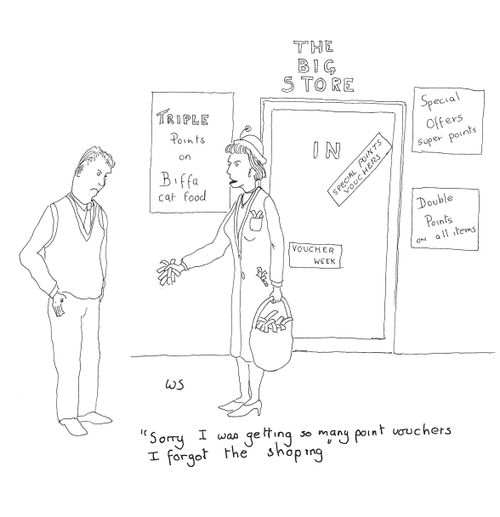 THE
BIG
STORE
TRIPLE
Points
on
Biffa
cat food
IN
SPECIAL POINTS
VOUCHERS
VOUCHER
WEEK
Special
Offers
super points
Double
Points
on all items
WS
"Sorry I was getting so many point vouchers
I forgot the shoping"